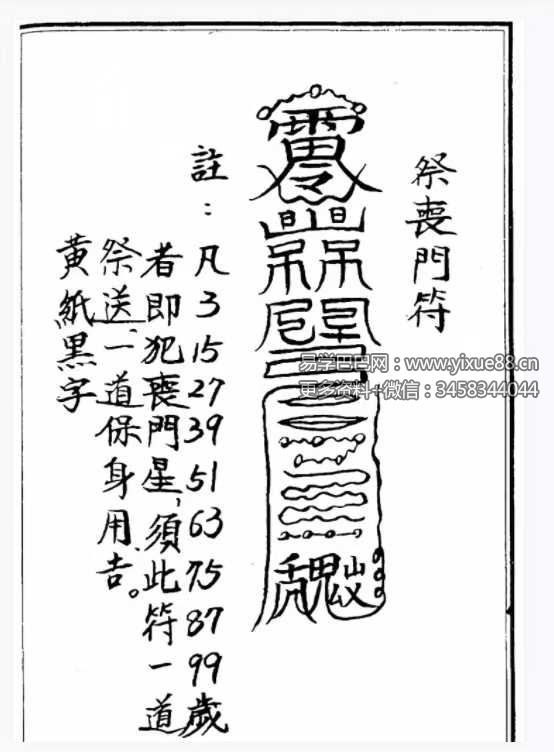 祭喪門符
註:
凡3 15 27 39 51 63 75 87 99歲
者即犯喪門星,須此符一道
祭送,一道保身用,吉。
黃紙黑字
易学巴巴网:www.yixue88.cn
更多资料+微信:3458344044